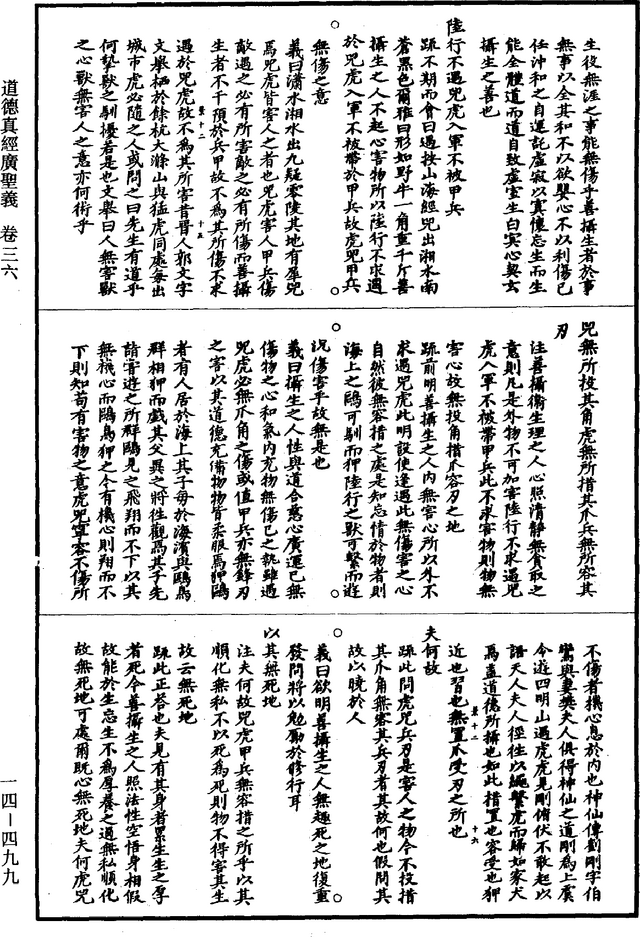 生役無涯之事能無傷乎善攝生者於事
無事以全其和不以欲嬰心不以利傷己
任沖和之自運託虛寂以寘懷忘生而生
能全體道而道自致虛室生白冥心契玄
攝生之善也
陸行不遇兕虎入軍不被甲兵
疏不期而會曰遇按山海經兕出湘水南
蒼黑色爾雅曰形如野牛一角重千斤善
攝生之人不起心害物所以陸行不求遇
於兕虎入軍不被帶於甲兵故虎兕甲兵
無傷之意
義曰瀟水湘水出九疑零陵其地有犀兕
焉兕虎皆害人之者也兕虎害人甲兵傷
敵遇之必有所害敵之必有所傷而善攝
生者不干預於兵甲故不為其所傷不求
遇於兕虎故不為其所害昔晉人郭文字
文舉栖於餘杭大滌山與猛虎同處每出
城市虎必隨之人或問之曰先生有道乎
何摯獸之馴擾若是也文舉曰人無害獸
之心獸無害人之意亦何術乎
兕無所投其角虎無所措其爪兵無所容其
刃
注善攝衛生理之人心照清靜無貪取之
意則凡是外物不可加害陸行不求遇兕
虎入軍不被帶甲兵此不求害物則物無
害心故無投角措爪容刃之地
疏前明善攝生之人內無害心所以外不
求遇兕虎此明設使逢遇此無傷害之心
自然彼無容措之處是知忘情於物者則
海上之鷗可馴而狎陸行之獸可繫而遊
況傷害乎故無是也
義曰攝生之人性與道合慈心廣運已無
傷物之心和氣內充物無傷己之執雖遇
兕虎必無爪角之傷或值甲兵亦無鋒刃
之害以其道德充備物物皆柔服焉狎鷗
者有人居於海上其子每於海濱與鷗鳥
群相狎而戲其父異之將往觀焉其子先
諸常遊之所群鷗見之飛翔而不下以其
無機心而鷗鳥狎之今有機心則翔而不
下則知苟有害物之意虎兕寧容不傷所
不傷者機心息於內也神仙傳劉剛字伯
鸞與妻樊夫人俱得神仙之道剛為上虞
令遊四明山遇虎虎見剛俯伏不敢起以
語夫人夫人徑往以繩繫虎而歸如家犬
焉蓋道德所攝也如此措置也容受也狎
近也習也無置爪受刃之所也
夫何故
疏此問虎兕兵刃是害人之物今不投措
其爪角無容其兵刃者其故何也假問其
故以曉於人
義曰欲明善攝生之人無趣死之地復重
發問將以勉勵於修行耳
以其無死地
注夫何故兕虎甲兵無容措之所乎以其
順化無私不以死為死則物不得害其生
故云無死地
疏此正答也夫見有其身者累生生之厚
者死今善攝生之人照法性空悟身相假
故能於生忘生不為厚養之過無私順化
故無死地可處爾既心無死地夫何虎兕
道德真經廣聖義 卷三六
一四－四九九